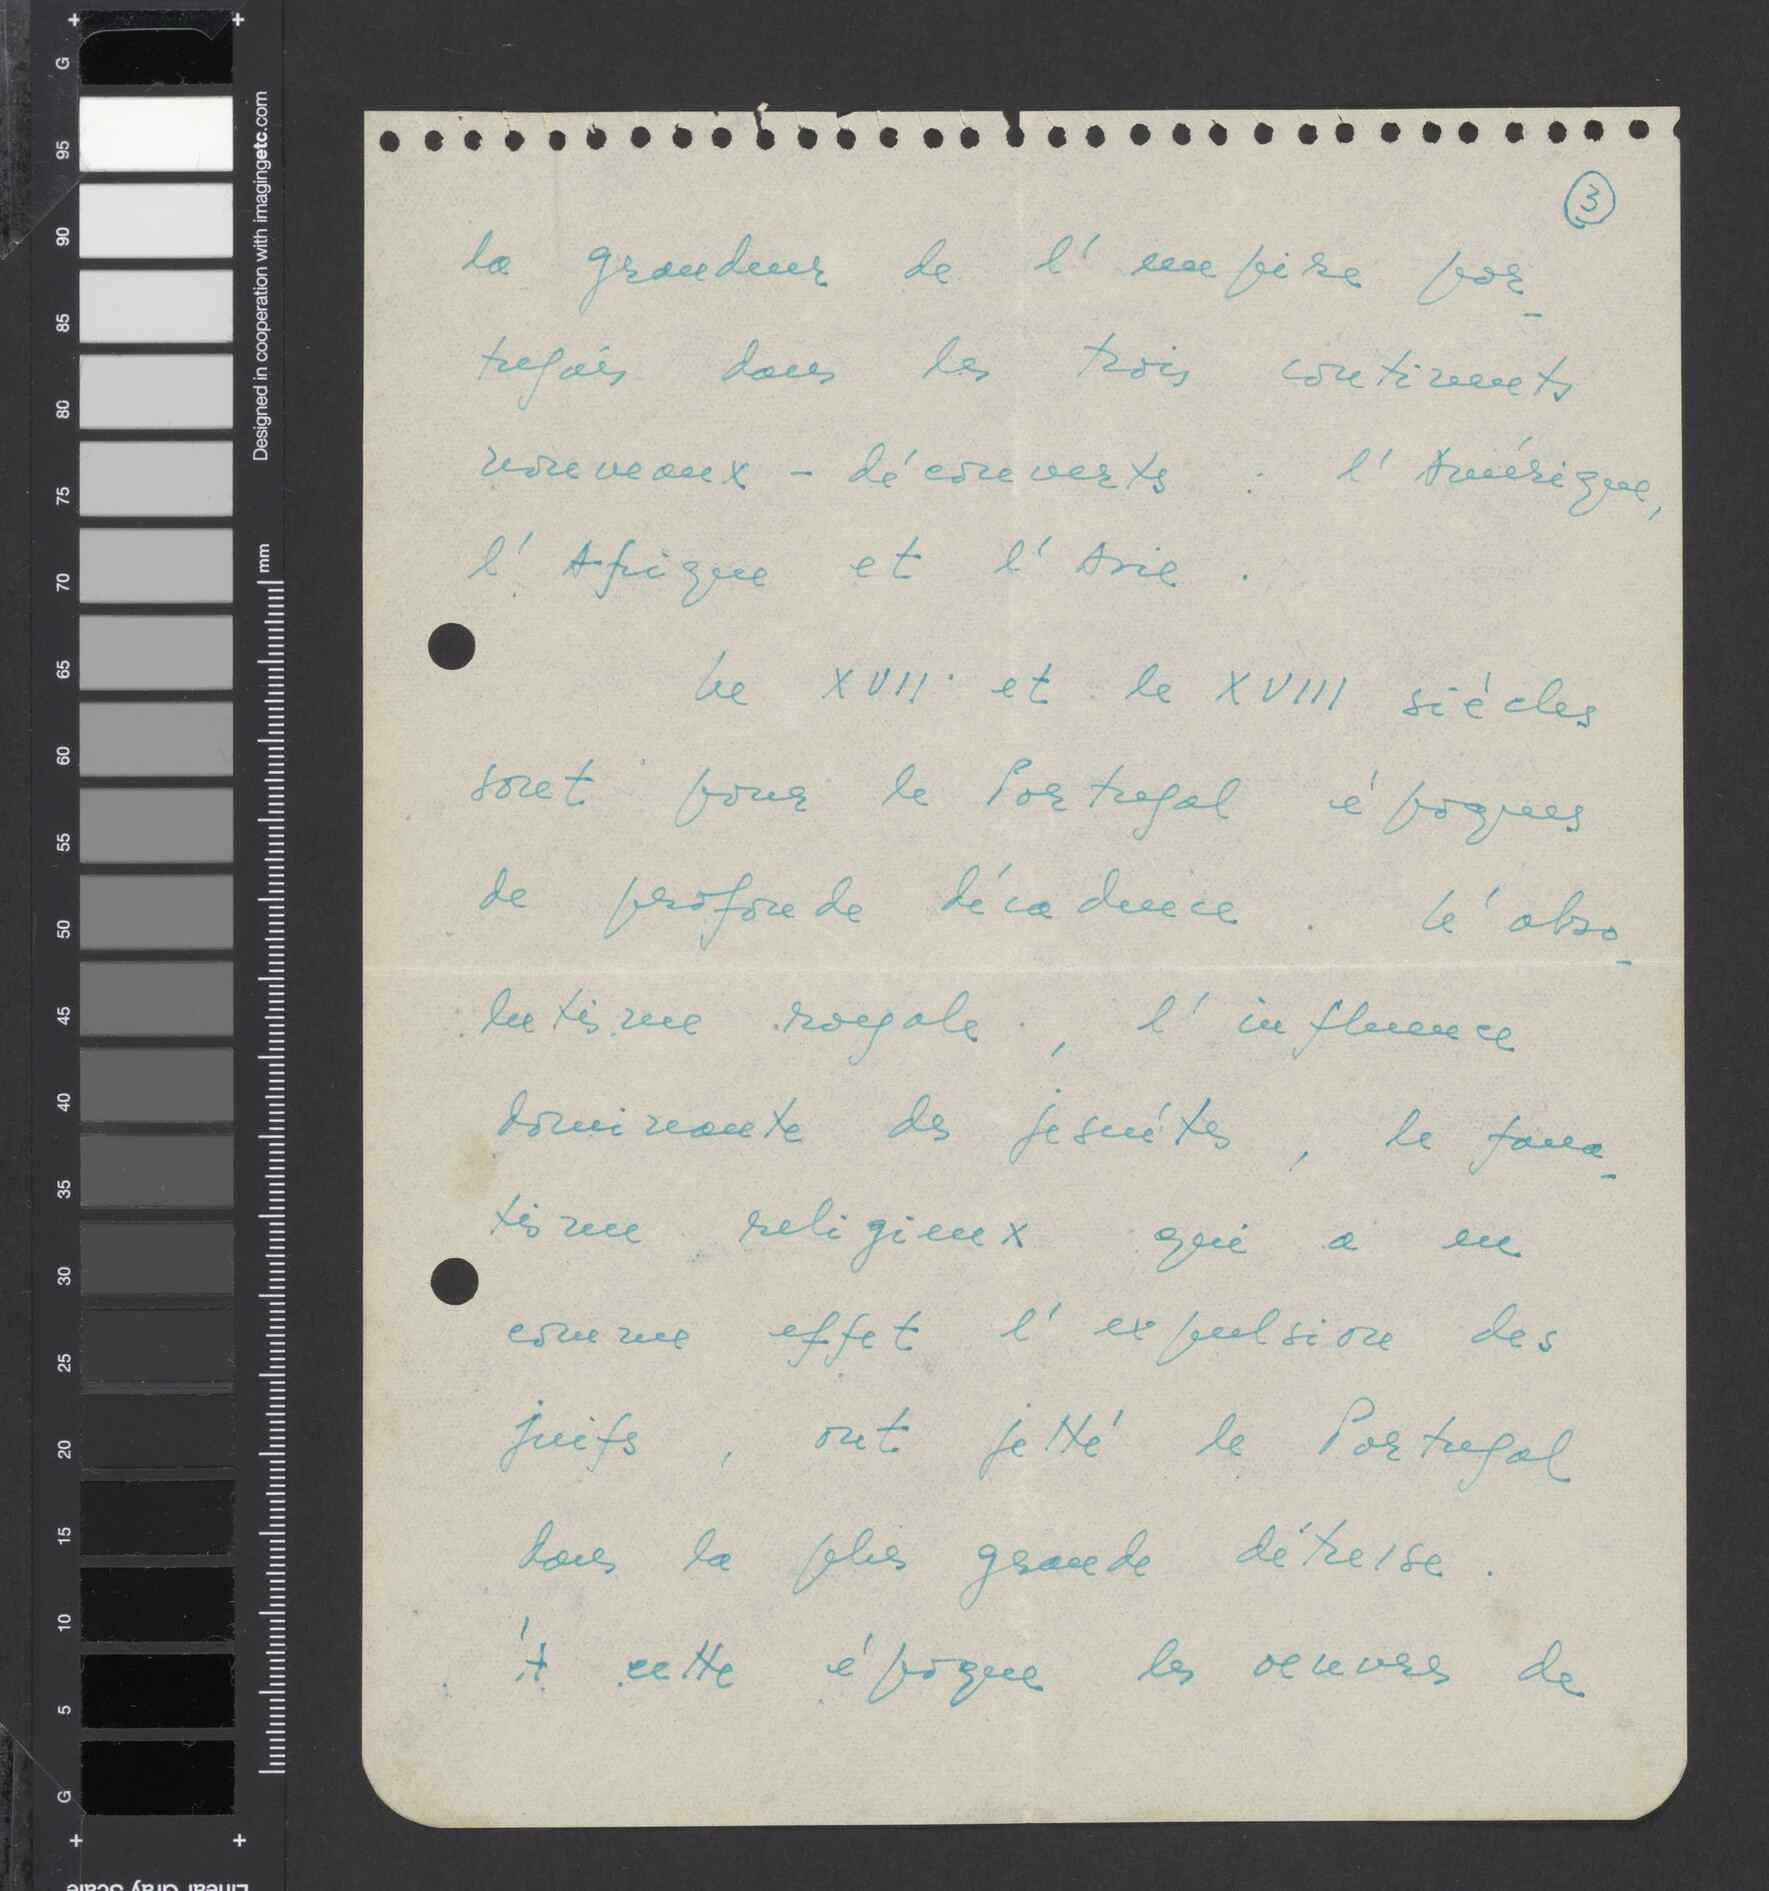 3
la grandeur de l'empire por-
tugais dans les trois continents
nouveaux-découverts. l'Amérique,
l'Afrique et l'Asie.
Le XVII et le XVIII siécles
sont pour le Portugal époques
de profonde décadence. L'abso-
lutisme royale, l'influence
dominante des jesuítes, le fana-
tisme religieux qui a eu
comme effet l'expulsion des
juifs, ont jetté le Portugal
dans la plus grande détresse.
'A cette époque les oeuvres de
G
95
90
85
80
75
70
65
60
55
50
45
40
35
30
25
20
15
10
5
G
Designed in cooperation with imagingetc.com
mm
Linear Gray Scale